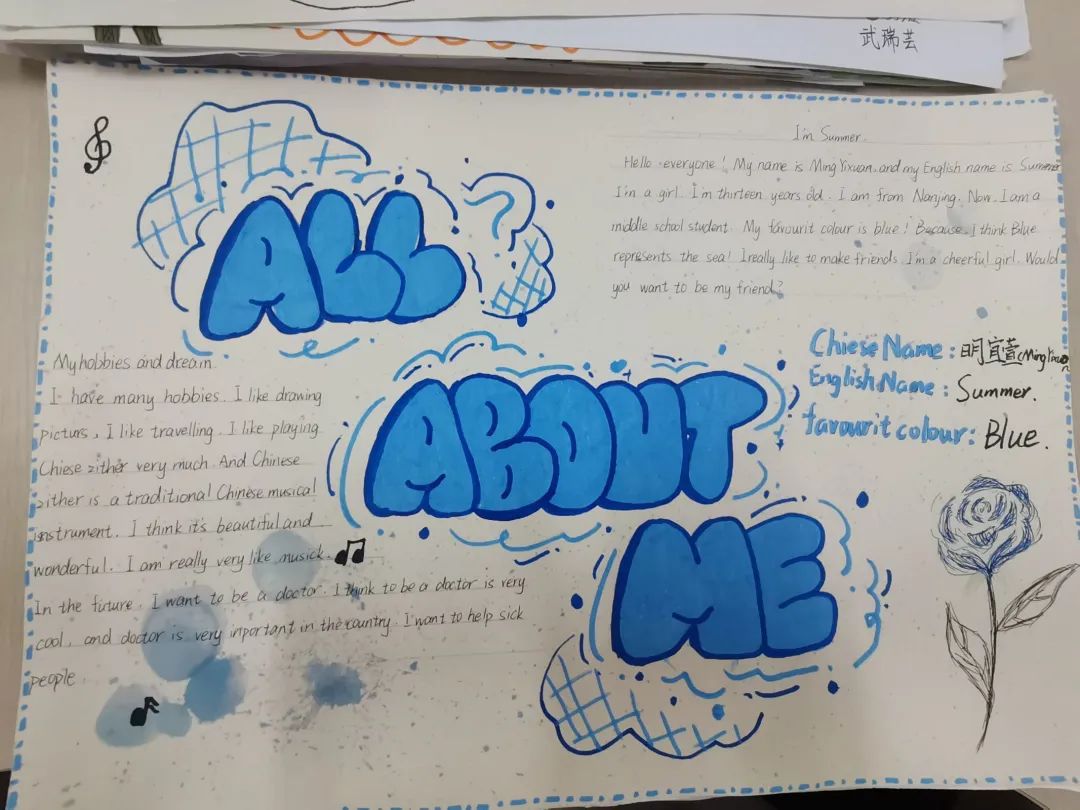 武瑞芸
ALL
ABOUT
ME
I'm Summer.
Hello everyone! My name is Ming Yixuan, and my English name is Summer
I'm a girl. I'm thirteen years old. I am from Nanjing. Now, I am a
middle school student. My favourit colour is blue! Because I think Blue
represents the sea! I really like to make friends. I'm a cheerful girl. Would
you want to be my friend?
Chiese Name: 明宜萱 (Ming Yixuan)
English Name: Summer.
favourit colour: Blue.
My hobbies and dream
I have many hobbies. I like drawing
picturs, I like travelling. I like playing
Chiese zither very much. And Chinese
zither is a traditional Chinese musical
instrument. I think it's beautiful and
wonderful. I am really very like musick.
In the future, I want to be a doctor. I think to be a doctor is very
cool, and doctor is very inportant in the country. I want to help sick
people